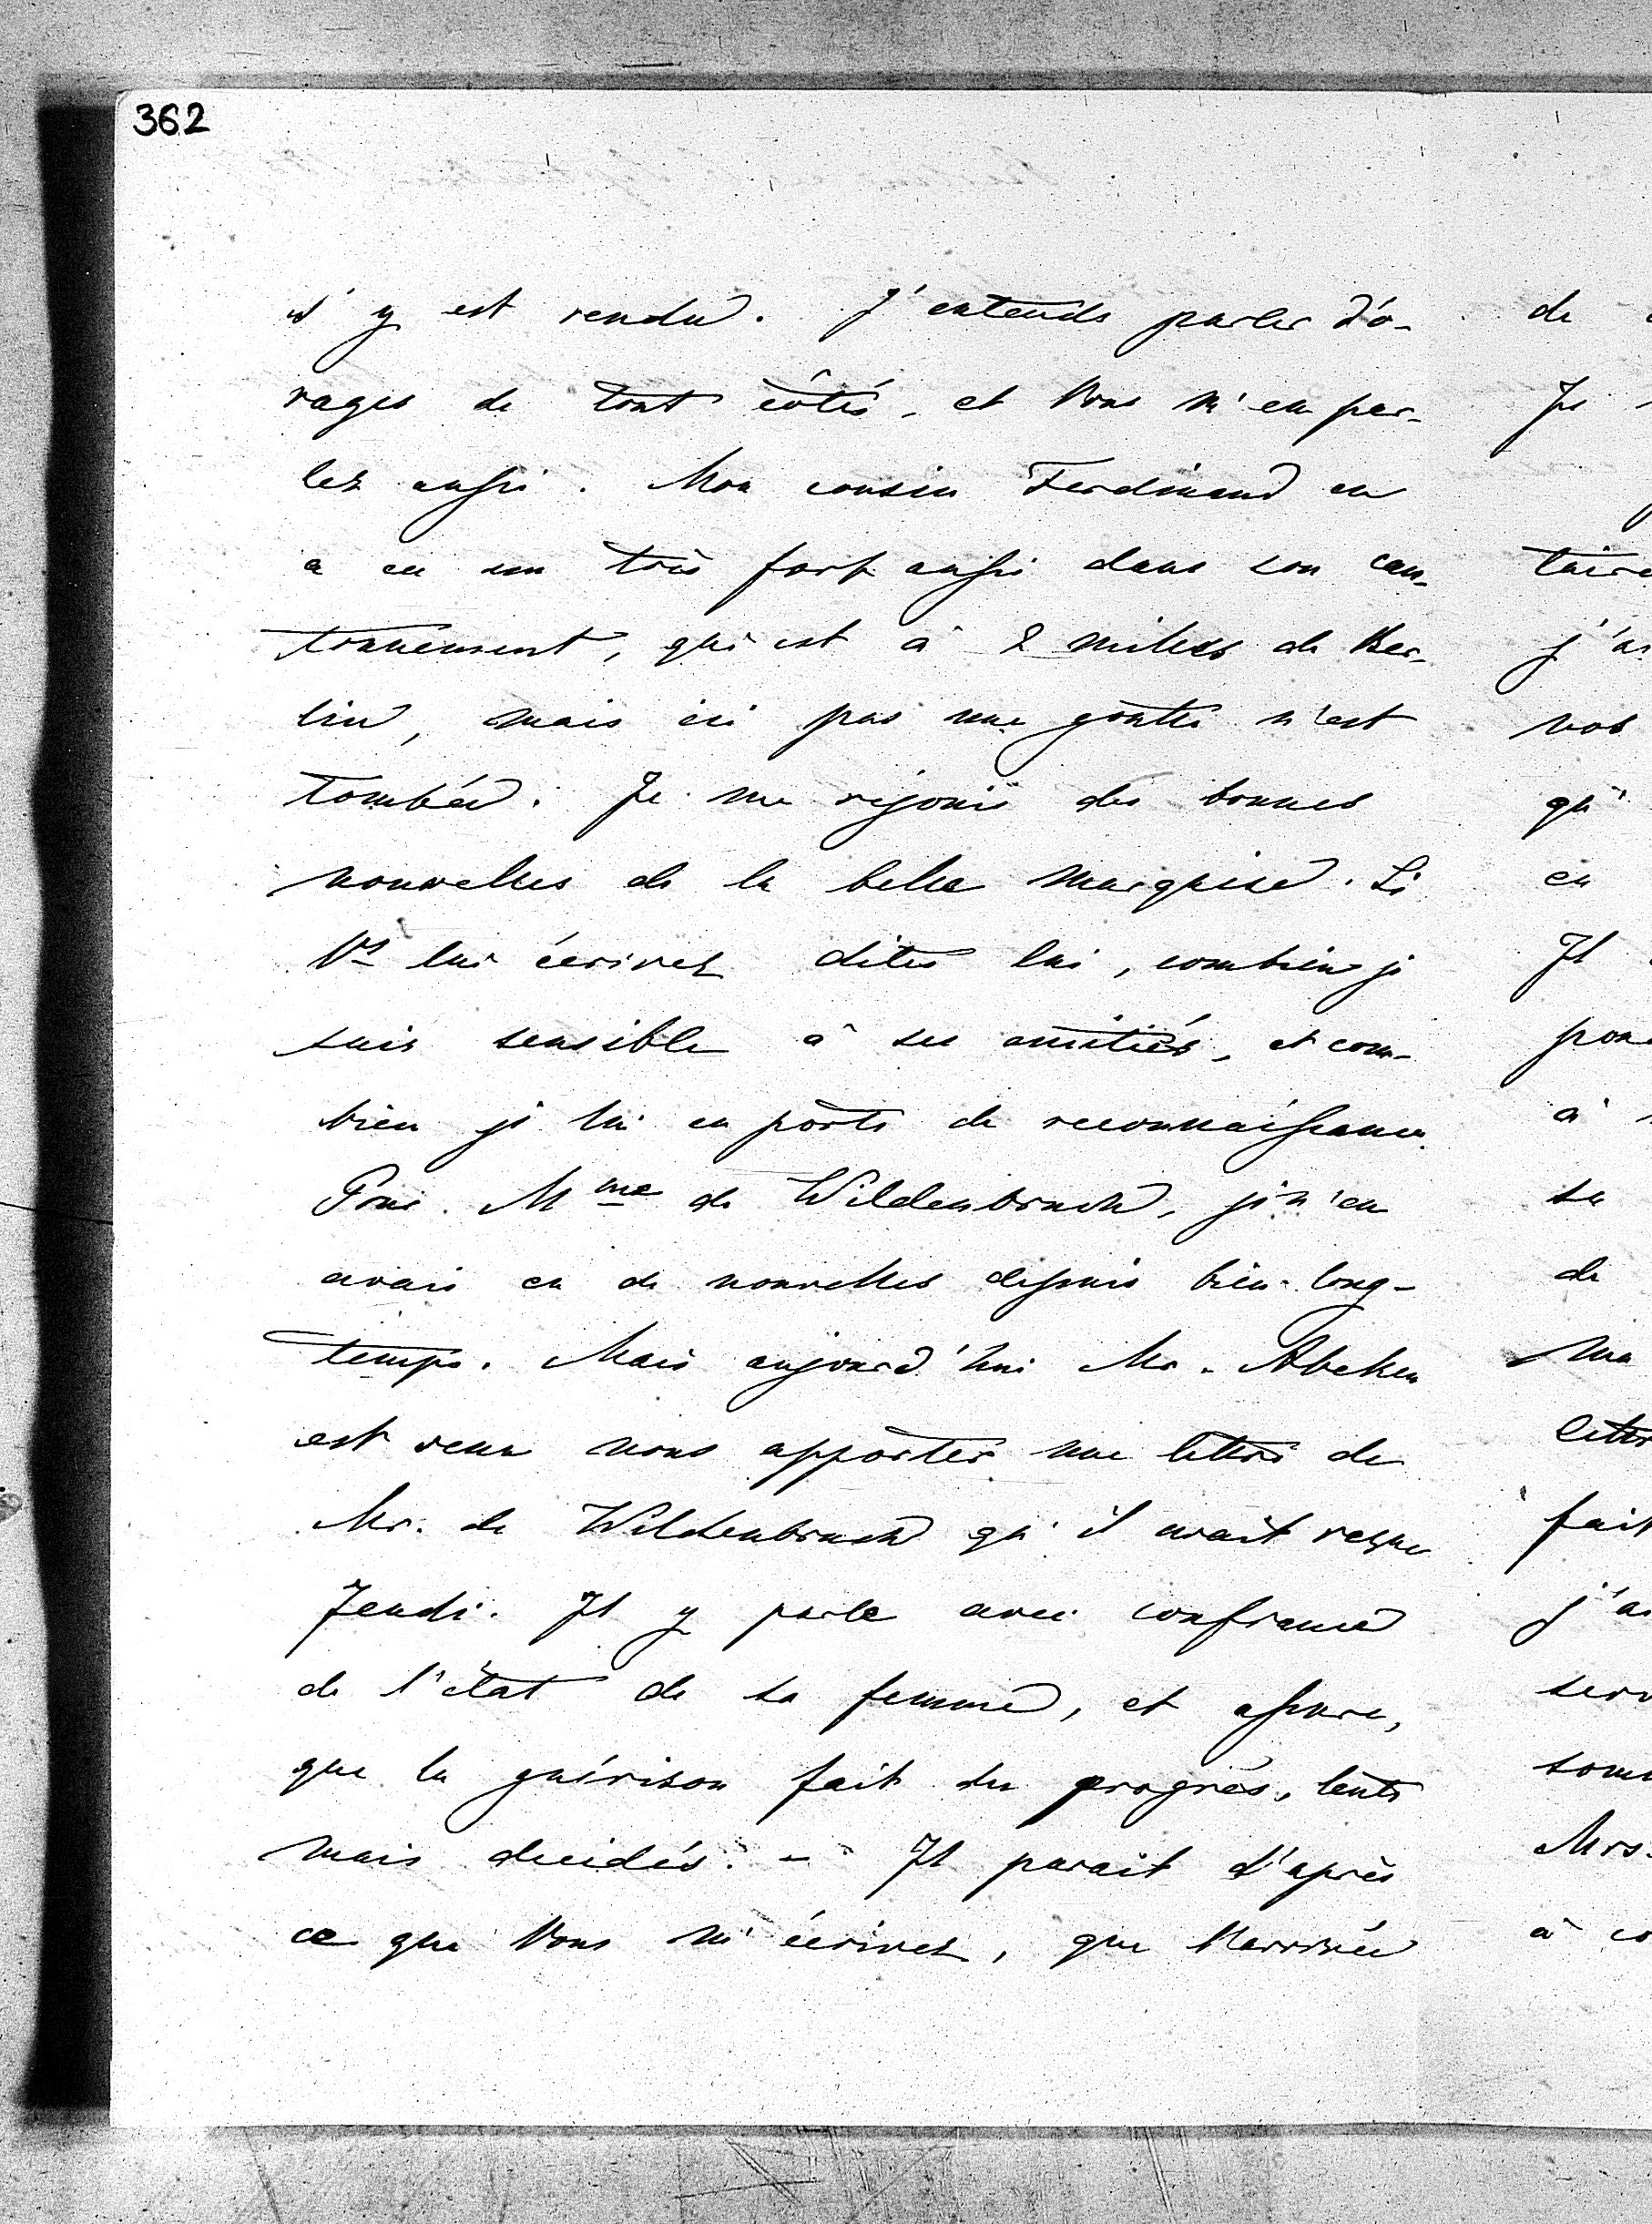 362
s'y est rendu. J'entends parler d'o-
rages de tout côtés, et Vous m'en par-
lez aussi. Mon cousin Ferdinand en
a eu un très fort aussi dans son can-
tonnement, qui est à 2 milles de Ber-
lin, mais ici pas une goutte n'est
tombée. Je me rejouis des bonnes
nouvelles de la belle Marquise. Si
Vs lui écrivez dites lui, combien je
suis sensible à ses amitiés, et com-
bien je lui en porte de reconnaissance.
Pour Mme de Wildenbruch, je n'en
avais eu de nouvelles depuis bien long-
temps. Mais aujourd'hui Mr. Abeken
est venu nous apporter une lettre de
Mr. de Wildenbruch qu'il avait reçue
Jeudi. Il y parle avec confiance
de l'état de sa femme, et assure,
que la guérison fait des progrès, lents
mais decidés. - Il parait d'après
ce que Vous m'écrivez, que
de
Je
taire
j'ai
nos
qu'
en
Il
pou
à
sa
de
ma
lettr
fait
j'ai
serv
somm
Mrs.
à co